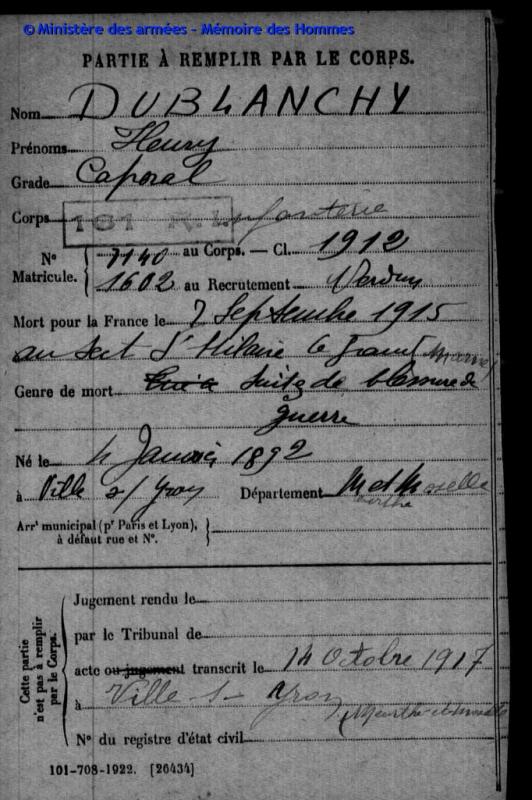 © Ministère des armées - Mémoire des Hommes
PARTIE À REMPLIR PAR LE CORPS.
Nom DUBLANCHY
Prénoms Henry
Grade Caporal
Corps 161 R.I. infanterie
N° 7140 au Corps. — Cl. 1912
Matricule. 1602 au Recrutement Verdun
Mort pour la France le 7 Septembre 1915
au Sect St Hilaire le Grand Marne
Genre de mort Suite de blessure de
guerre
Né le 4 Janvier 1892
à Ville s/ Yron Département M et Moselle
Meurthe
Arrt municipal (pr Paris et Lyon),
à défaut rue et N°.
Cette partie
n'est pas à remplir
par le Corps.
Jugement rendu le
par le Tribunal de
acte ou jugement transcrit le 14 Octobre 1917
à Ville s- Yron
(Meurthe et Moselle
N° du registre d'état civil
101-708-1922. [26434]